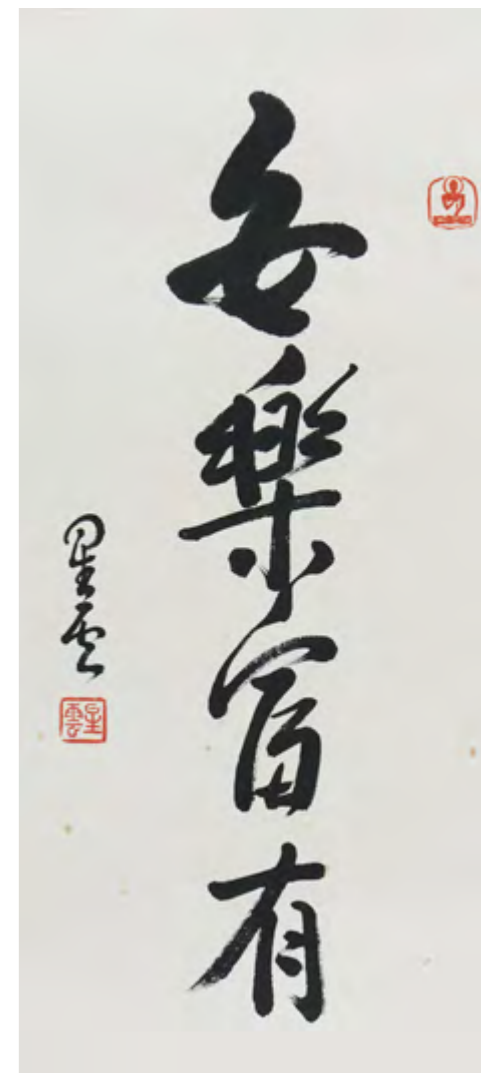 安樂富有
星雲
星雲